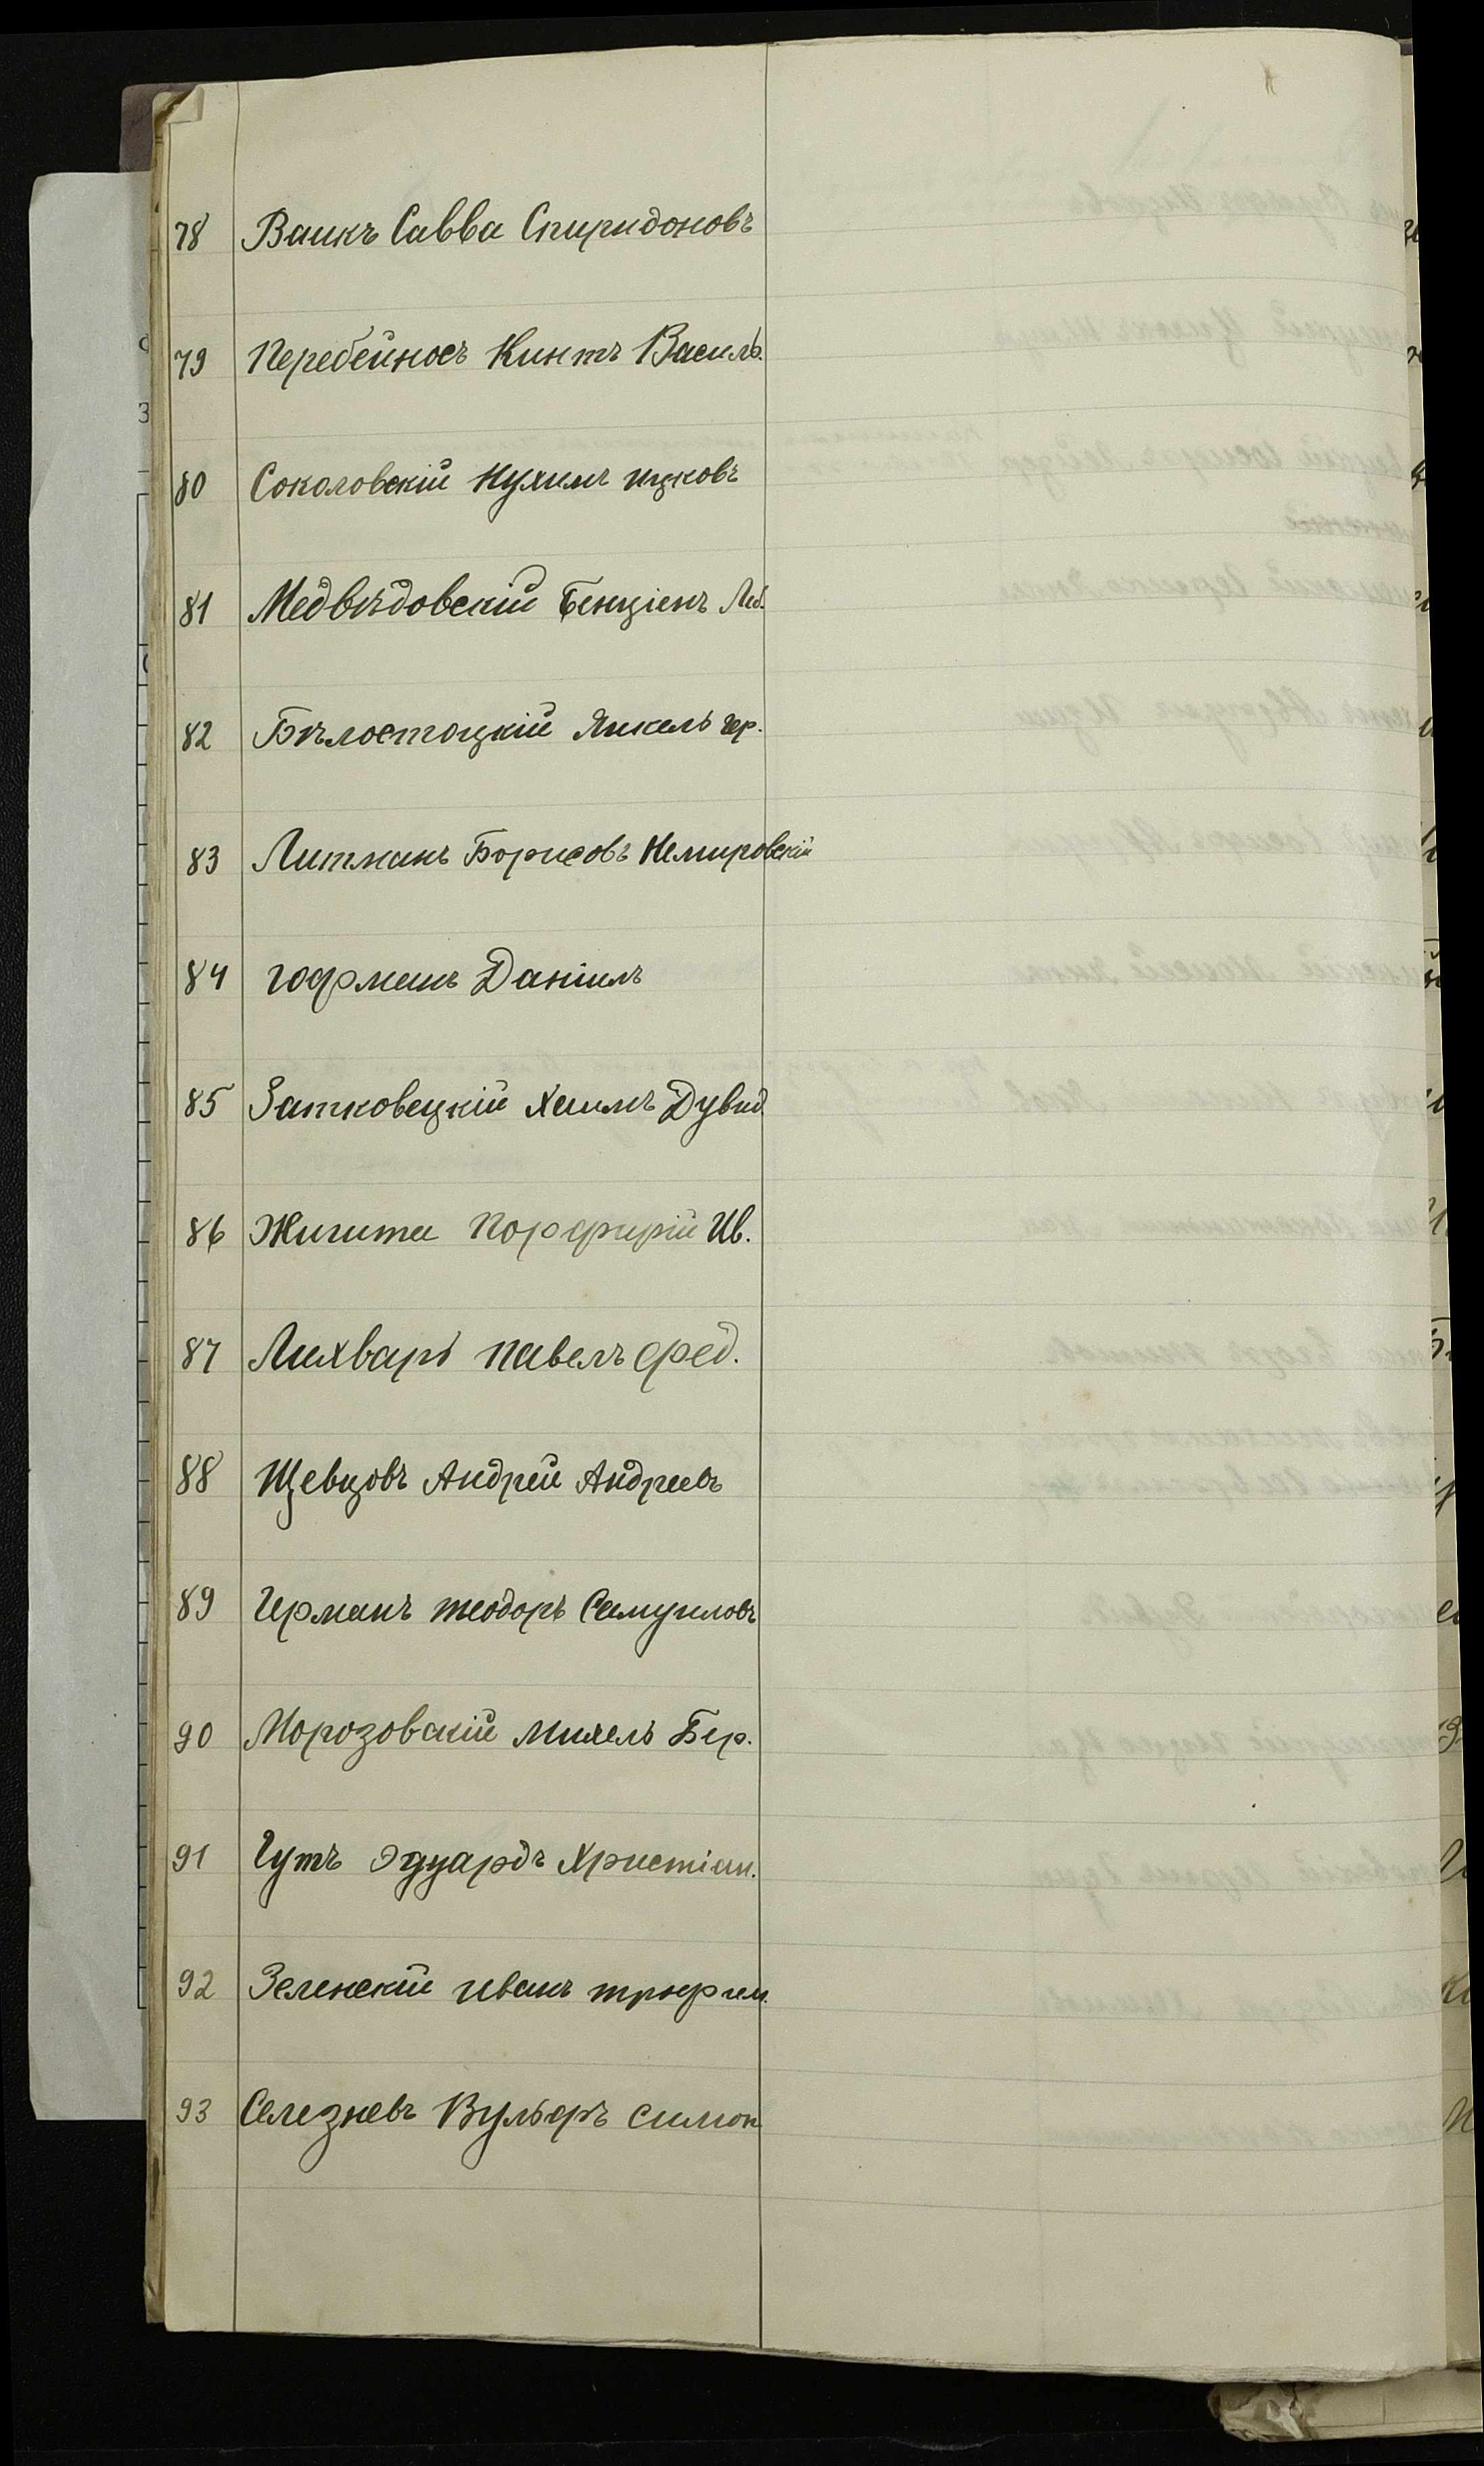 78 Ваикъ Савва Спиридоновъ
79 Перебейносъ Кинтъ Василь.
80 Соколовскій Нухимъ Ицковъ
81 Медвѣдовскій Бенціенъ Леб.
82 Бѣлостоцкій Янкель Гер.
83 Литманъ Борисовъ Немировскій
84 Гофманъ Даніилъ
85 Затковецкій Хаимъ Дувид
86 Жигита Порфирій Ив.
87 Лихварь Павелъ Фед.
88 Щевцовъ Андрей Андреевъ
89 Германъ Теодоръ Самуиловъ
90 Морозовскій Михель Бер.
91 Гутъ Эдуардъ Христіан.
92 Зеленскій Иванъ Трофим.
93 Селезневъ Вульфъ Симон